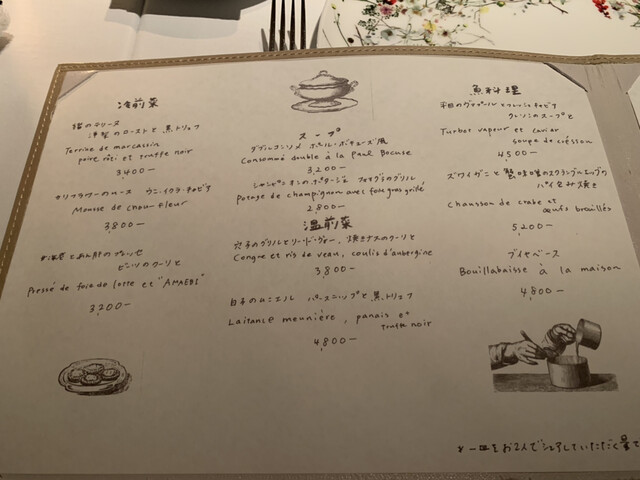 冷前菜
猪のテリーヌ
洋梨のローストと黒トリュフ
Terrine de marcassin
poire rôti et truffe noir
3,400—
カリフラワーのムース ウニ・イクラ・キャビア
Mousse de chou-fleur
3,800—
甘海老とあん肝のプレッセ
Pressé de foie de lotte et "AMAEBI"
3,200—
スープ
ダブルコンソメ ポール・ボキューズ風
Consommé double à la Paul Bocuse
3,200—
シャンピニオンのポタージュ フォアグラのグリル
Potage de champignon avec foie gras grillé
2,800—
温前菜
穴子のグリルとリー・ド・ヴォー、焼きナスのクーリと
Congre et ris de veau, coulis d'aubergine
3,800—
白子のムニエル パースニップと黒トリュフ
Laitance meunière, panais et
truffe noir
4,800—
魚料理
平目のヴァプールとフレッシュキャビア
クレソンのスープと
Turbot vapeur et caviar
soupe de cresson
4,500—
ズワイガニと蟹味噌のスクランブルエッグの
パイ包み焼き
Chausson de crabe et
œufs brouillés
5,200—
ブイヤベース
Bouillabaisse à la maison
4,800—
一皿をお2人でシェアしていただく量で